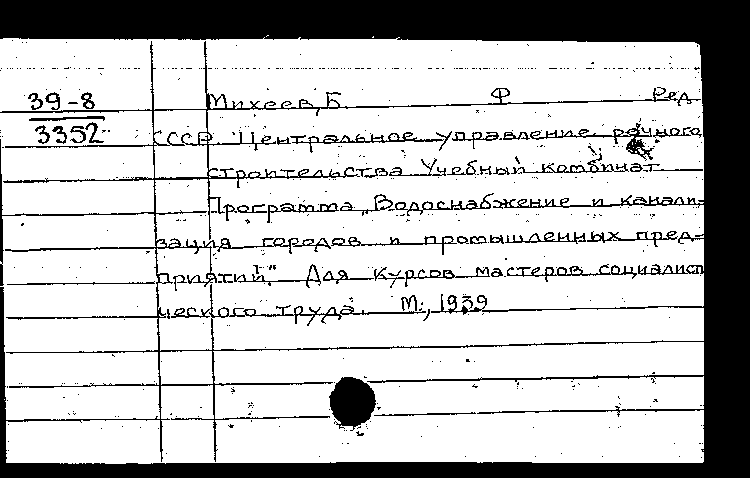 39-8 Михеев, Б. Ф Ред
3352 СССР. Центральное управление речного
строительства Учебный комбинат
Программа „Водоснабжение и канали-
зация городов и промышленных пред-
приятий." Для курсов мастеров социалист
ческого труда. М:, 1939